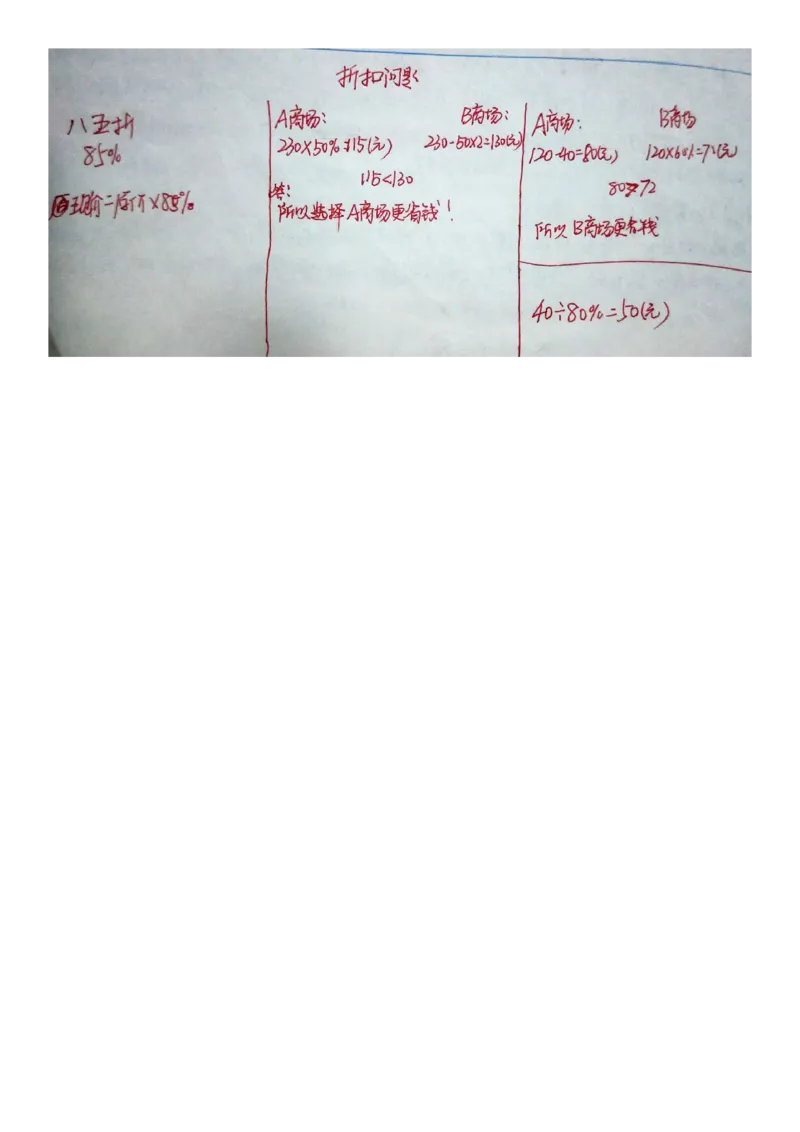 折扣问题
八五折
85%
现价=原价×85%
A商场: B商场:
230×50%=115(元) 230-50×2=130(元)
115<130
答:
所以选择A商场更省钱!
A商场: B商场
120-40=80(元) 120×60%=72(元)
80>72
所以B商场更省钱
40÷80%=50(元)